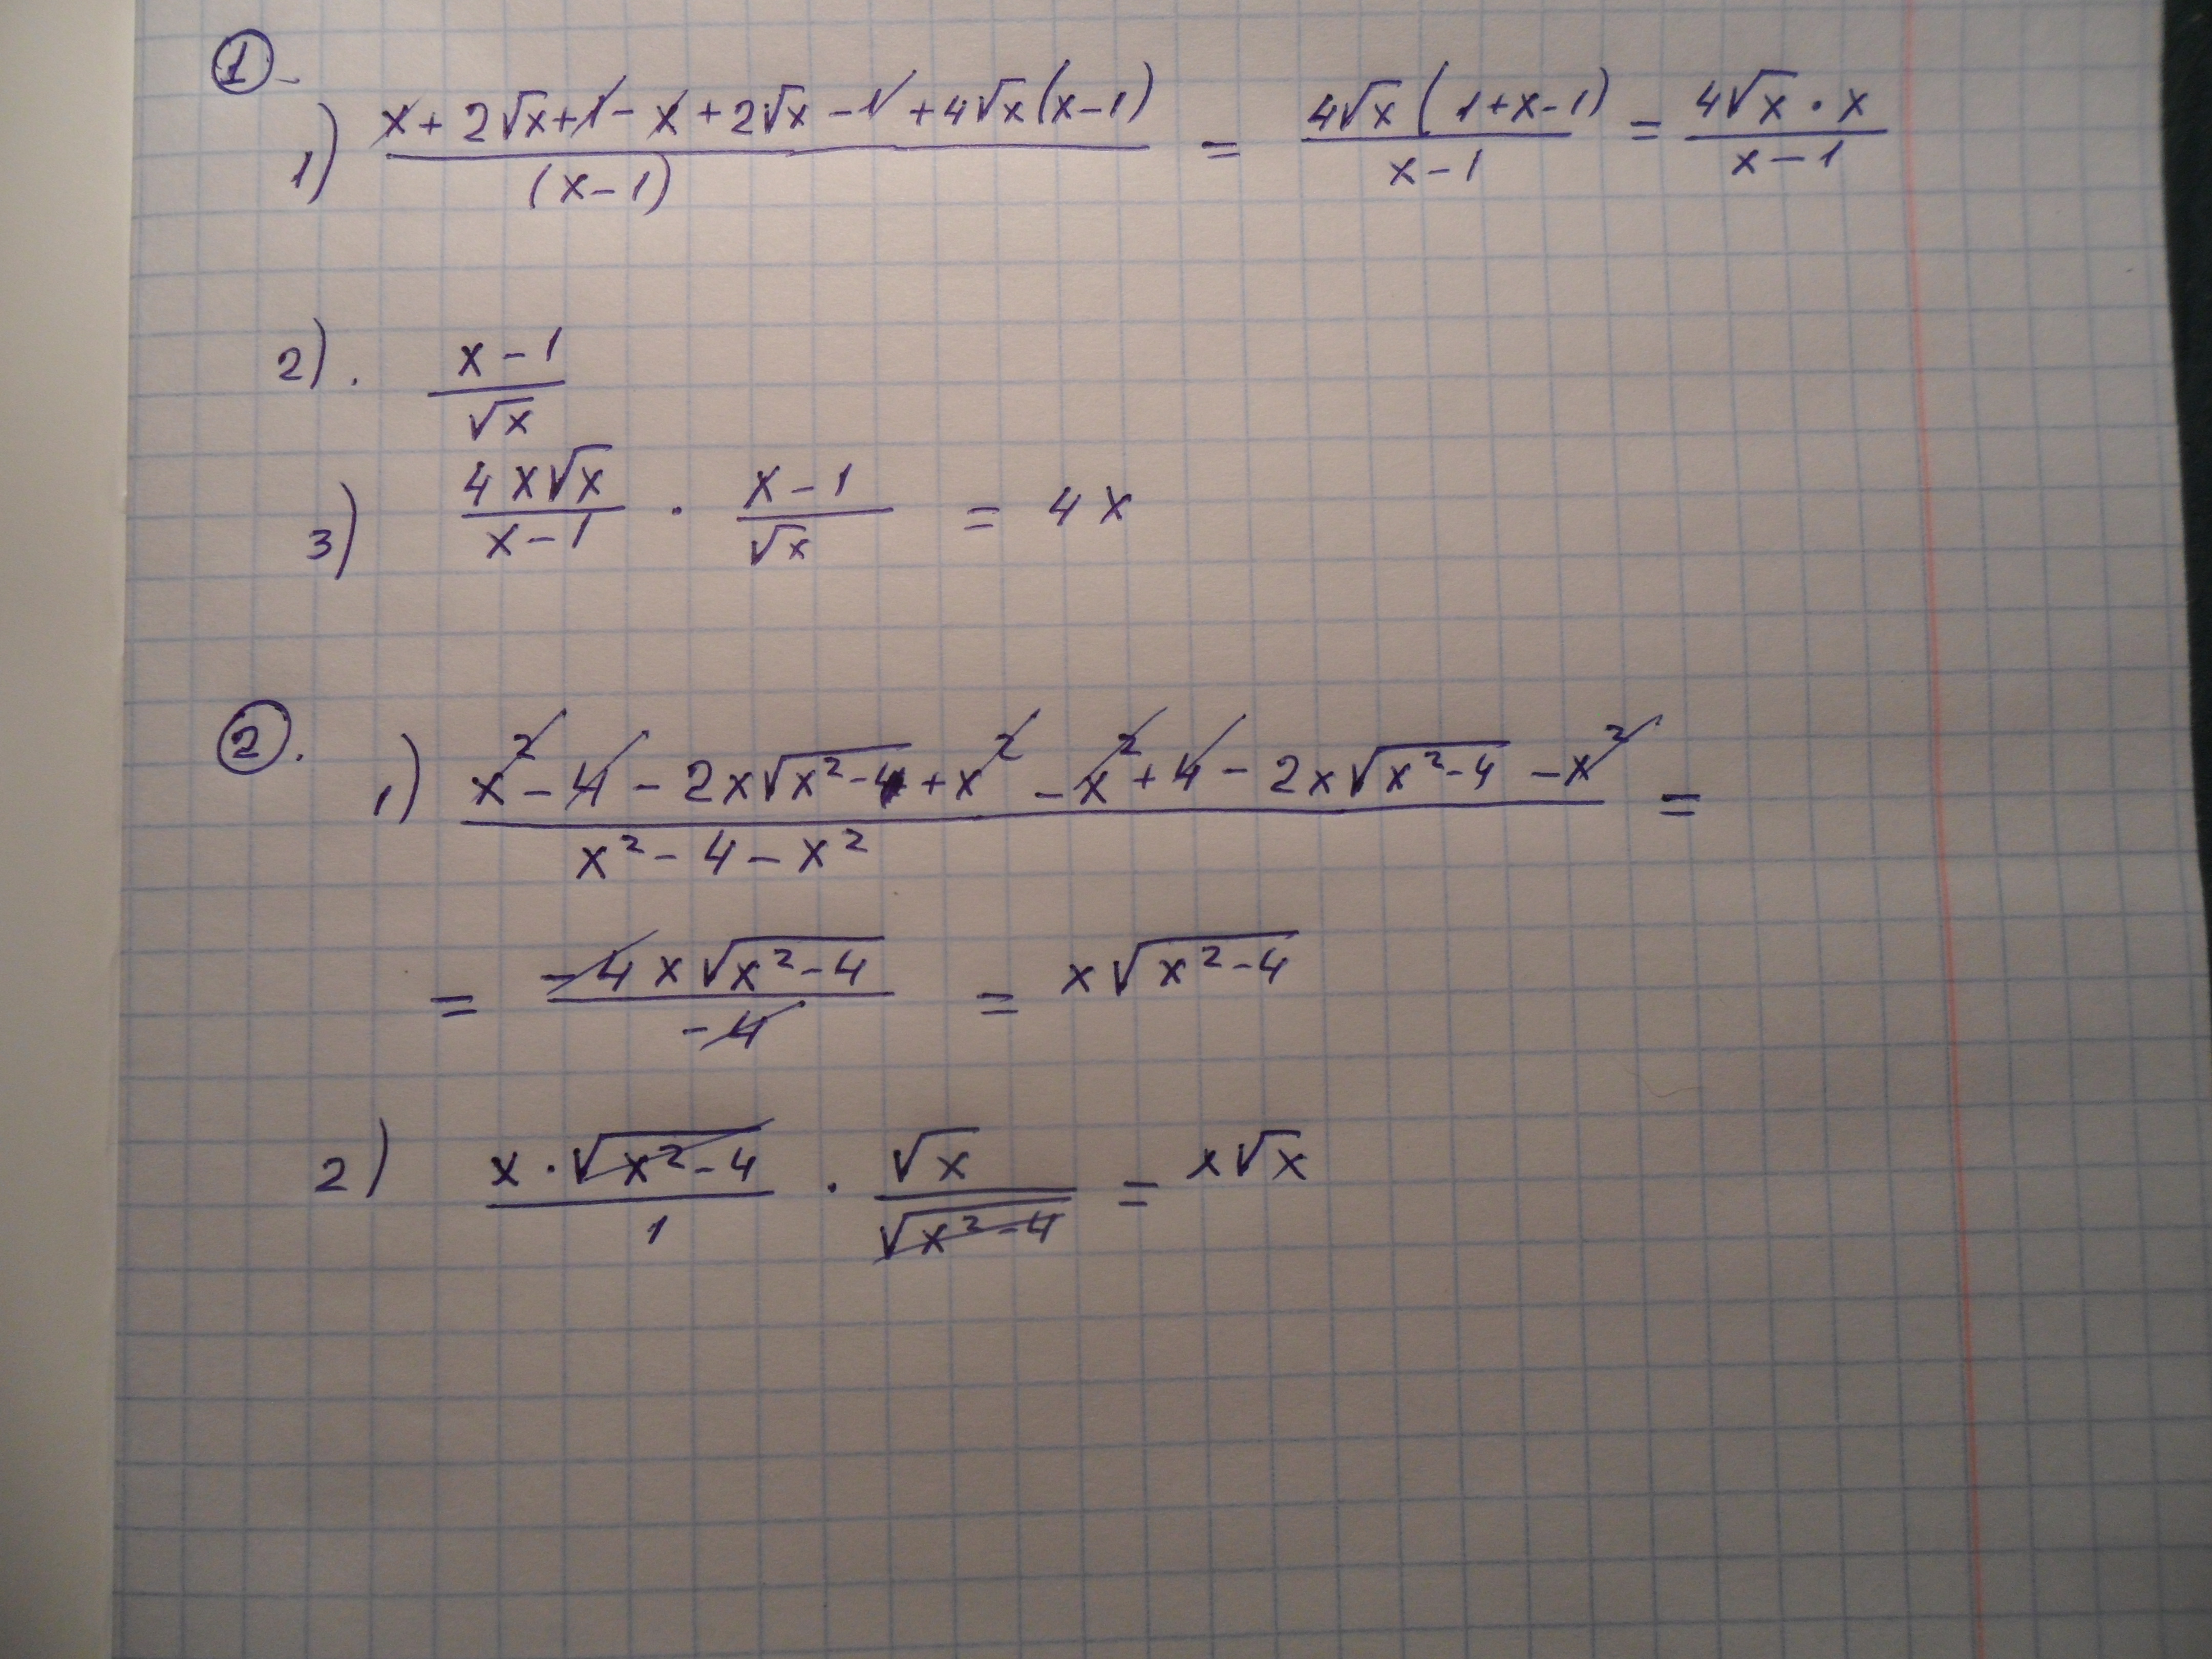 ①
1) (x + 2√x + 1 - x + 2√x - 1 + 4√x(x-1)) / (x-1) = 4√x(1+x-1) / (x-1) = 4√x · x / (x-1)
2). (x-1) / √x
3) 4x√x / (x-1) · (x-1) / √x = 4x
②.
1) (x² - 4 - 2x√(x²-4) + x² - x² + 4 - 2x√(x²-4) - x²) / (x² - 4 - x²) =
= -4x√(x²-4) / -4 = x√(x²-4)
2) x · √(x²-4) / 1 · √x / √(x²-4) = x√x